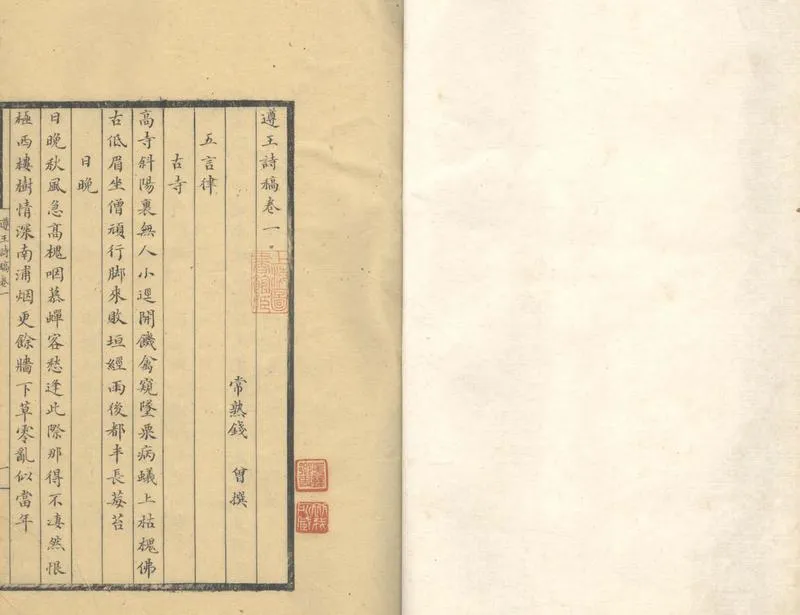 遵王詩稿卷一
上海圖書館藏
常熟錢 曾撰
五言律
古寺
高寺斜陽裏無人小逕開饑禽窺墜粟病蟻上枯槐佛
古低眉坐僧頑行脚來敗垣經雨後都半長莓苔
日晚
日晚秋風急高槐咽暮蟬客愁逢此際那得不凄然恨
極西樓樹情深南浦烟更餘牆下草零亂似當年
遵王詩稿卷一
一